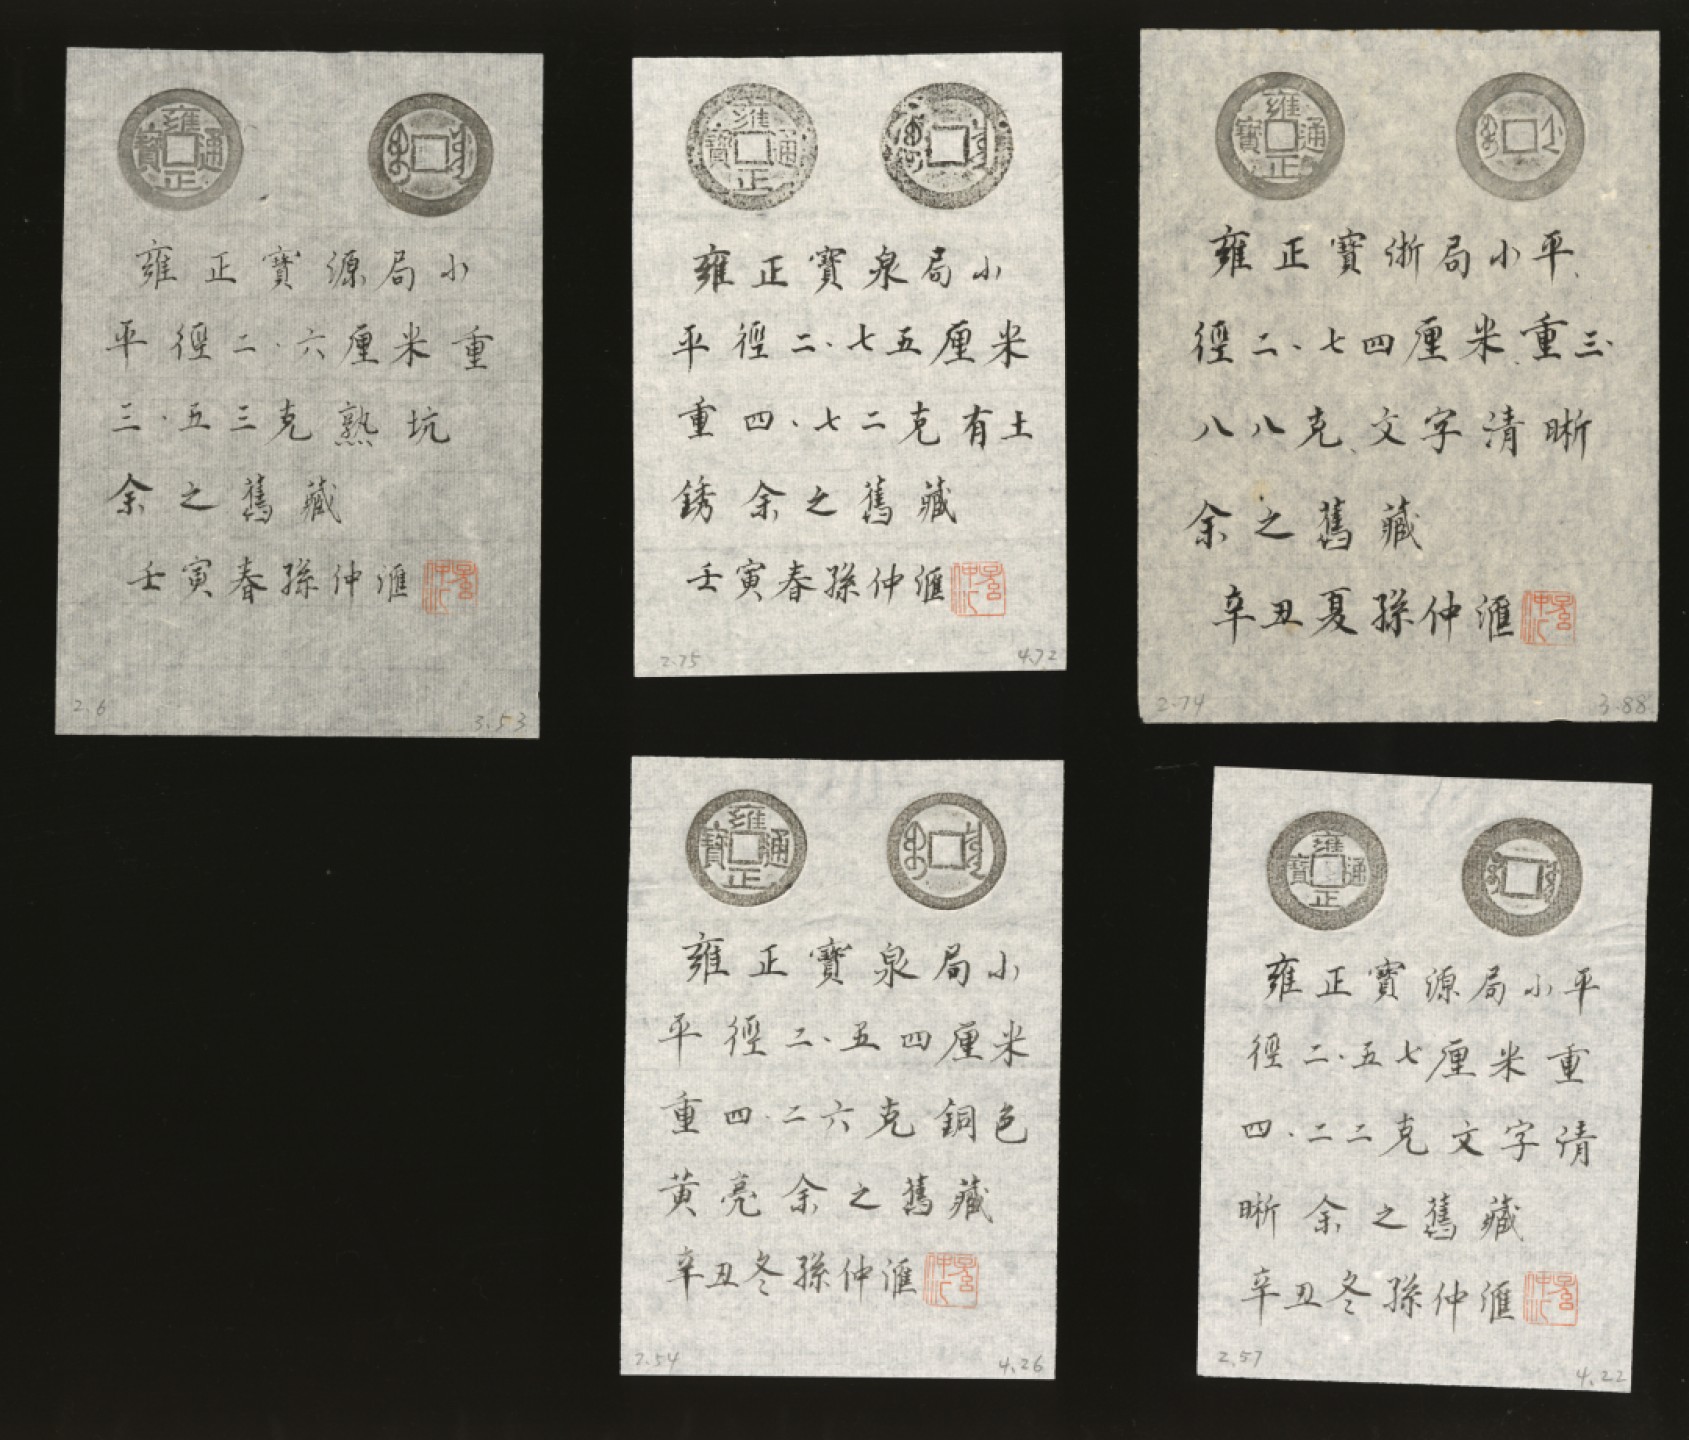 雍正通寶
雍正寶源局小
平徑二.六厘米重
三.五三克熟坑
余之舊藏
壬寅春孫仲滙
2.6
3.53
雍正通寶
雍正寶泉局小
平徑二.七五厘米
重四.七二克有土
銹余之舊藏
壬寅春孫仲滙
2.75
4.72
雍正通寶
雍正寶浙局小平
徑二.七四厘米重三.
八八克文字清晰
余之舊藏
辛丑夏孫仲滙
2.74
3.88
雍正通寶
雍正寶泉局小
平徑二.五四厘米
重四.二六克銅色
黄亮余之舊藏
辛丑冬孫仲滙
2.54
4.26
雍正通寶
雍正寶源局小平
徑二.五七厘米重
四.二二克文字清
晰余之舊藏
辛丑冬孫仲滙
2.57
4.22